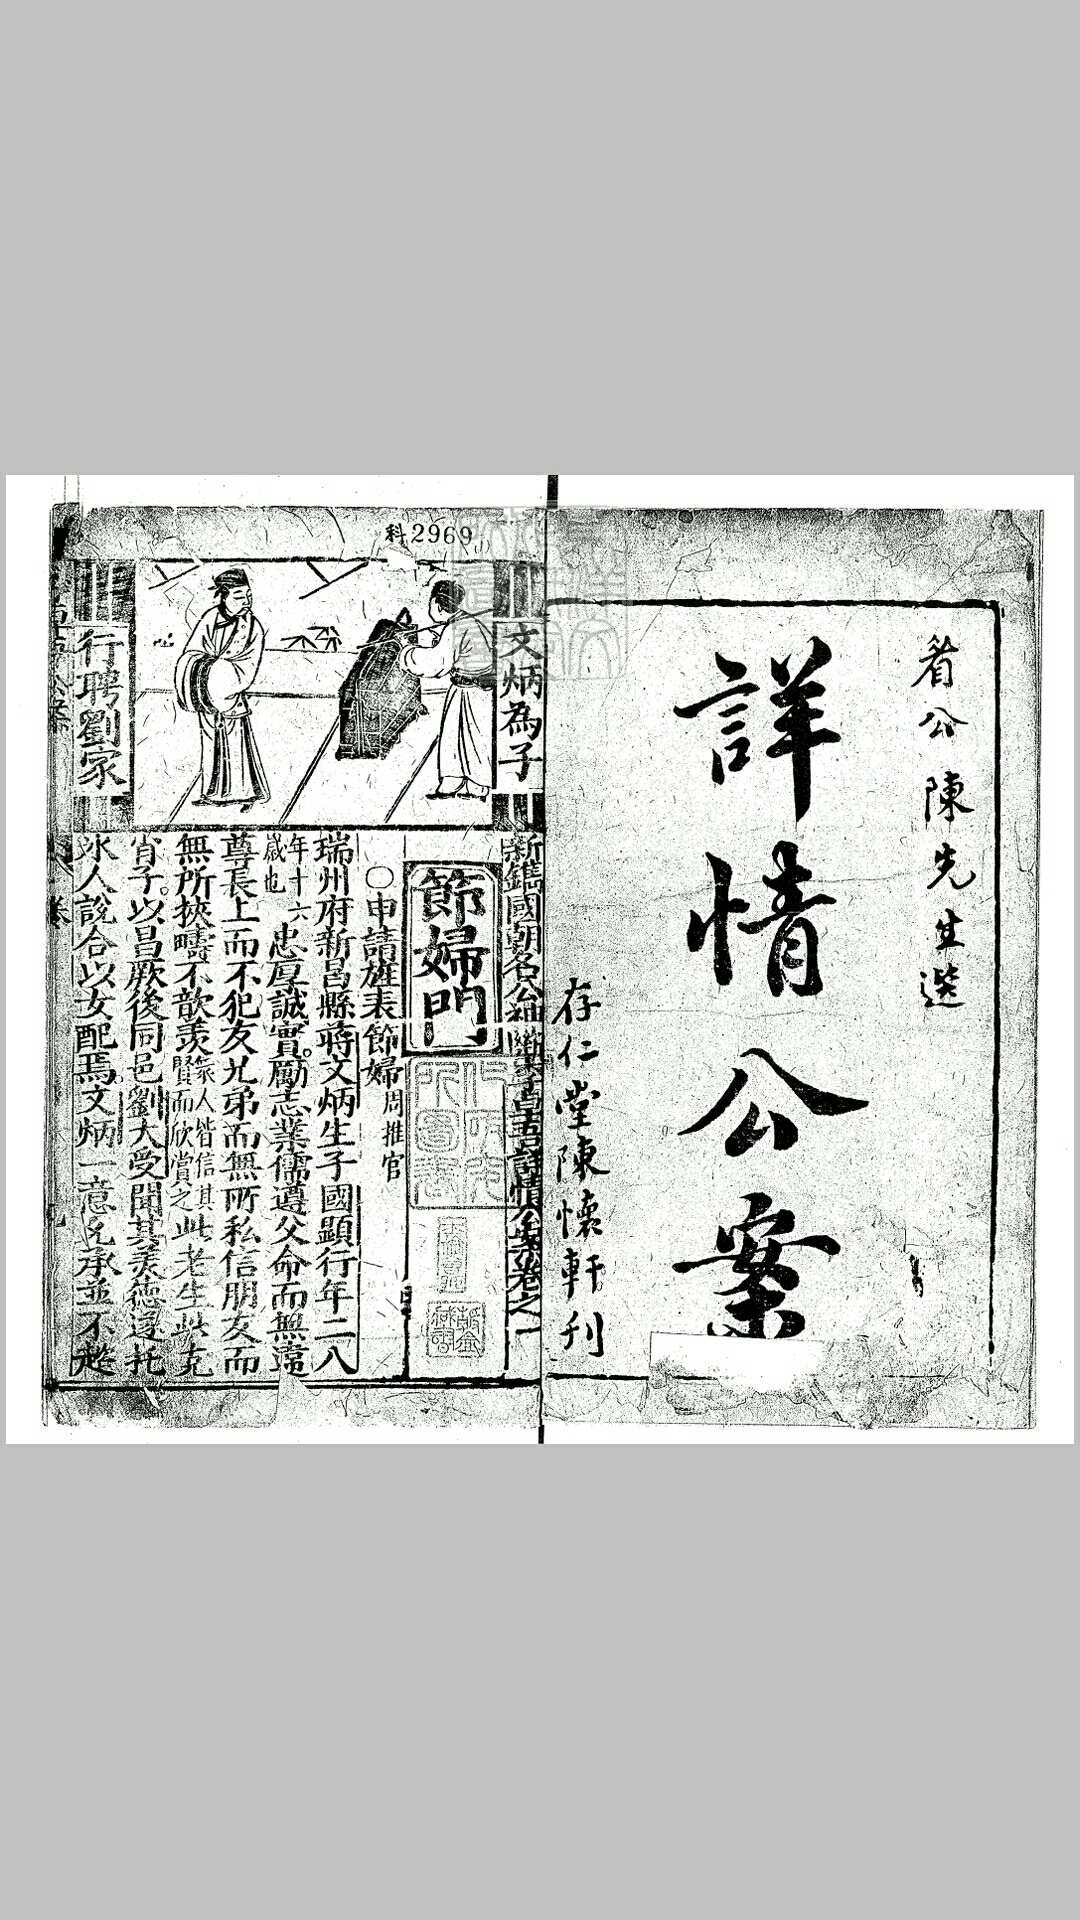 眉公陳先生選
詳情公案
存仁堂陳懷軒刊
科2969
文炳為子
行聘劉家
新鐫國朝名公神斷李卓吾詳情公案卷之一
節婦門
○申請旌表節婦 周推官
瑞州府新昌縣蔣文炳生子國顯行年二八
年十六歲也 忠厚誠實勵志業儒遵父命而無違
尊長上而不犯友兄弟而無所私信朋友而
無所挾疇不歆羨 篆人皆信其賢而欣賞之 此老生此克
肖子以昌厥後同邑劉大受聞其羨德遂托
氷人說合以女配焉文炳一意兊承並不趍